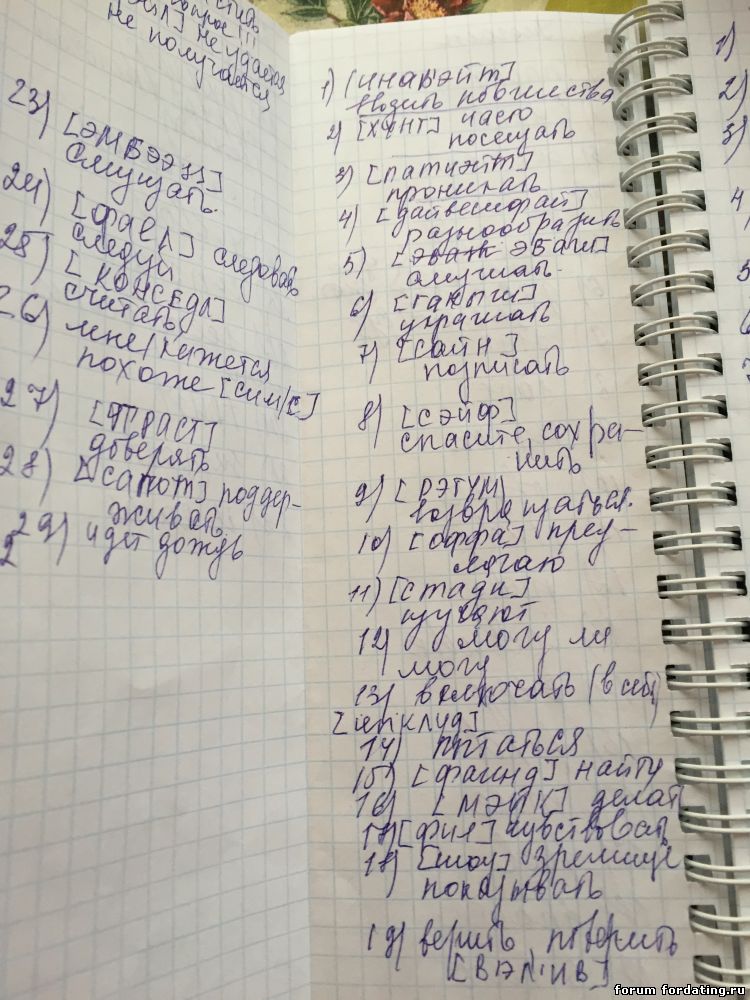 не удается
не получается
23) [эмбээз]
смущать.
24) [фаел] следовать
следуй
25) [конседл]
считать
26) мне кажется
похоже [сим/с]
27) [траст]
доверять
28) [сапот] поддер-
живать
29) идет дождь
1) [инавэйт]
вводить новшества
2) [хунт] часто
посещать
3) [патиэйт]
проникать
4) [дайвесифай]
разнообразить
5) [эваж эваш]
6) [гакыш]
украшать
7) [сайн]
подписать
8) [сэйф]
спасите, сохра-
нить
9) [рэтум]
возвращаться.
10) [оффа] пред-
лягаю
11) [стади]
изучают
12) могу ли
могу
13) включать (в себя)
[инклуд]
14) питаться
15) [файнд] найти
16) [мэйк] делать
17) [фил] чувствовать
18) [шоу] зрелище
показывать
19) верить, поверить
[вэлив]
1)
2)
3)
4
5
6
forum fordating.ru